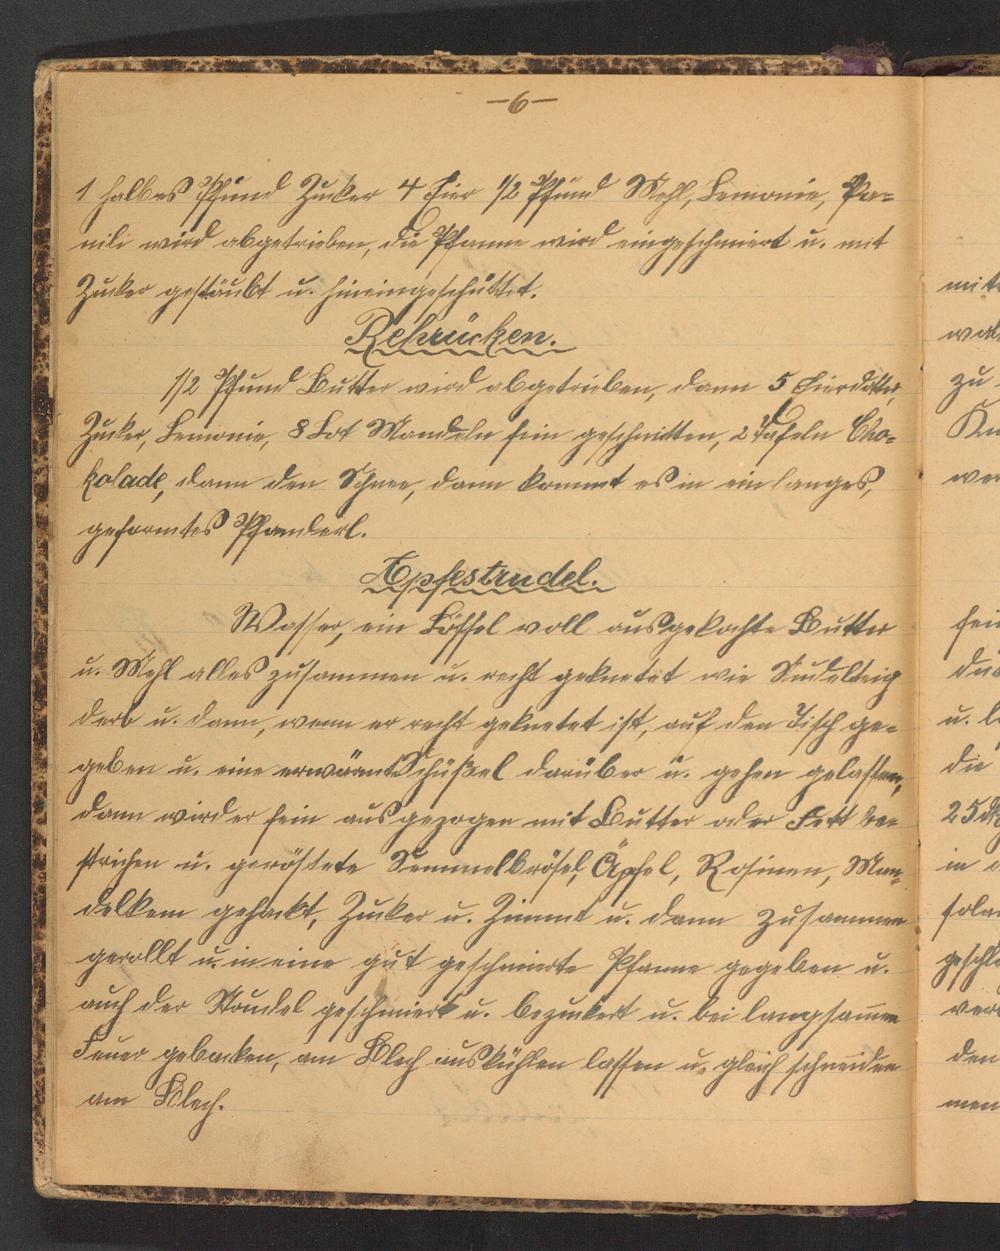 -6-
1 halbes Pfund Zucker 4 Eier 1/2 Pfund Mehl, Lemonie, Va=
nili wird abgetrieben, die Pfanne wird eingeschmiert u. mit
Zucker gestäubt u. hineingeschüttet.
Rehrücken.
1/2 Pfund Butter wird abgetrieben, dann 5 Eierdotter,
Zucker, Lemonie, 8 Lot Mandeln fein geschnitten, 2 Tafeln Cho=
kolade, dann den Schnee, dann kommt es in ein langes,
geformtes Pfanderl.
Apfestrudel.
Wasser, ein Löffel voll ausgekochte Butter
u. Mehl alles zusammen u. recht geknetet wie Nudelteig
derb u. dann, wenn er recht geknetet ist, auf den Tisch ge=
geben u. eine erwärmte Schüßel darüber u. gehen gelassen,
dann wird er fein ausgezogen mit Butter oder Fett be=
strichen u. geröstete Semmelbrösel, Äpfel, Rosinen, Man=
delkern gehackt, Zucker u. Zimmt u. dann zusammen
gerollt u. in eine gut geschmierte Pfanne gegeben u.
auch der Strudel geschmiert u. bezuckert u. bei langsamen
Feuer gebacken, am Blech auskühlen lassen u. gleich schneiden
am Blech.